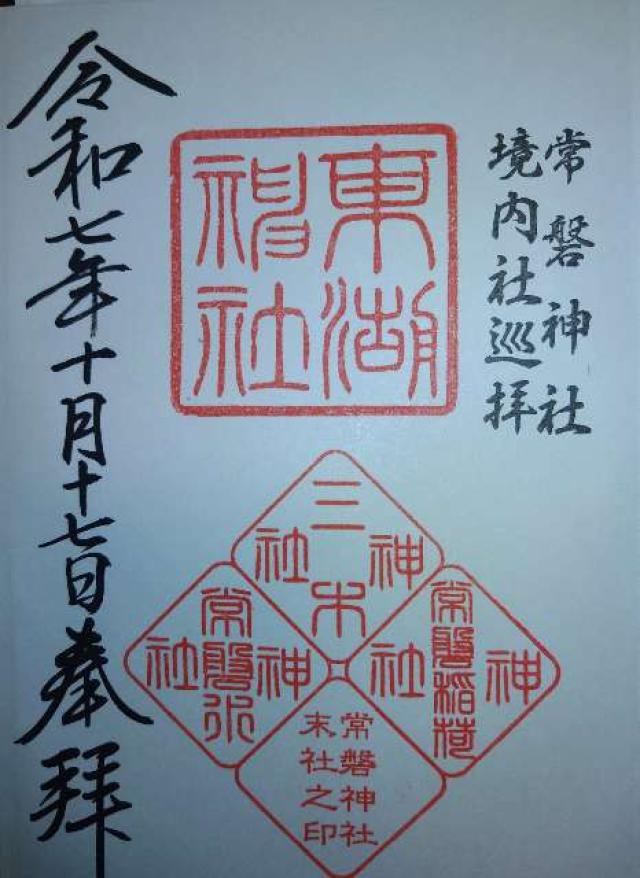 常磐神社
境内社巡拝
東湖
神社
三木神社
常磐稲荷神社
常磐水神社
常磐神社
末社之印
令和七年十月十七日奉拝